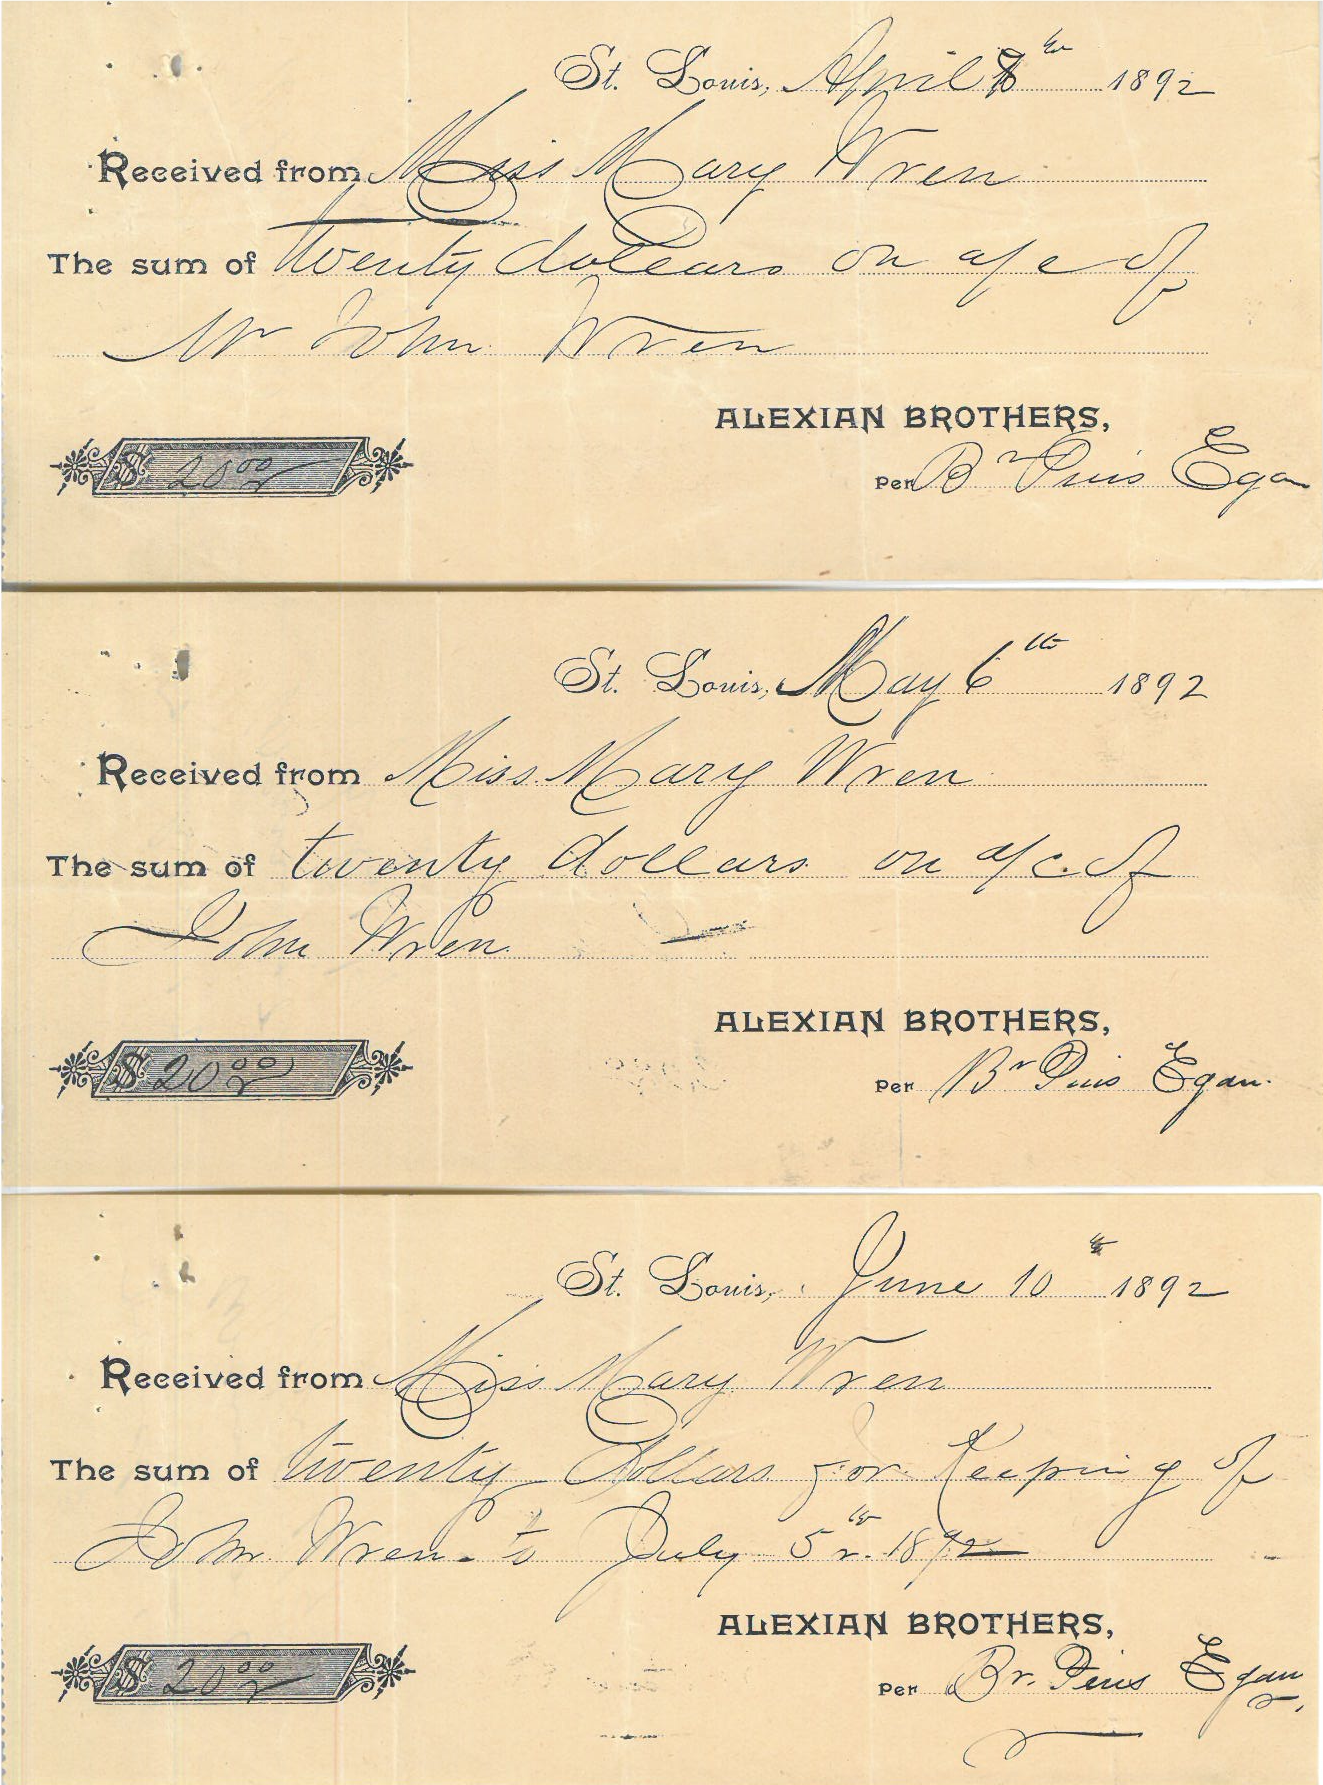 St. Louis, April 8th 1892
Received from Miss Mary Wren
The sum of twenty dollars on a/c of
Mr John Wren
ALEXIAN BROTHERS,
$ 20 00
Per Br Pius Egan
St. Louis, May 6th 1892
Received from Miss Mary Wren
The sum of twenty dollars on a/c. of
John Wren.
ALEXIAN BROTHERS,
$ 20 00
Per Br Pius Egan.
St. Louis, June 10th 1892
Received from Miss Mary Wren
The sum of twenty Dollars for Keeping of
John Wren - to July 5th 1892
ALEXIAN BROTHERS,
$ 20 00
Per Br. Pius Egan